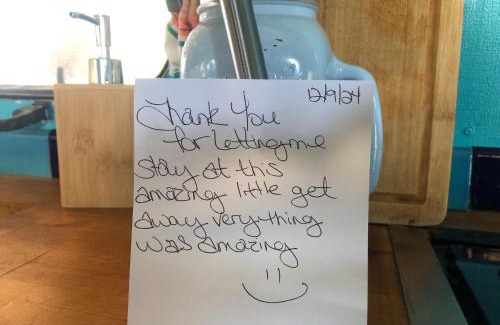 12/9/24
Thank You
for letting me
stay at this
amazing little get
away verything
was amazing